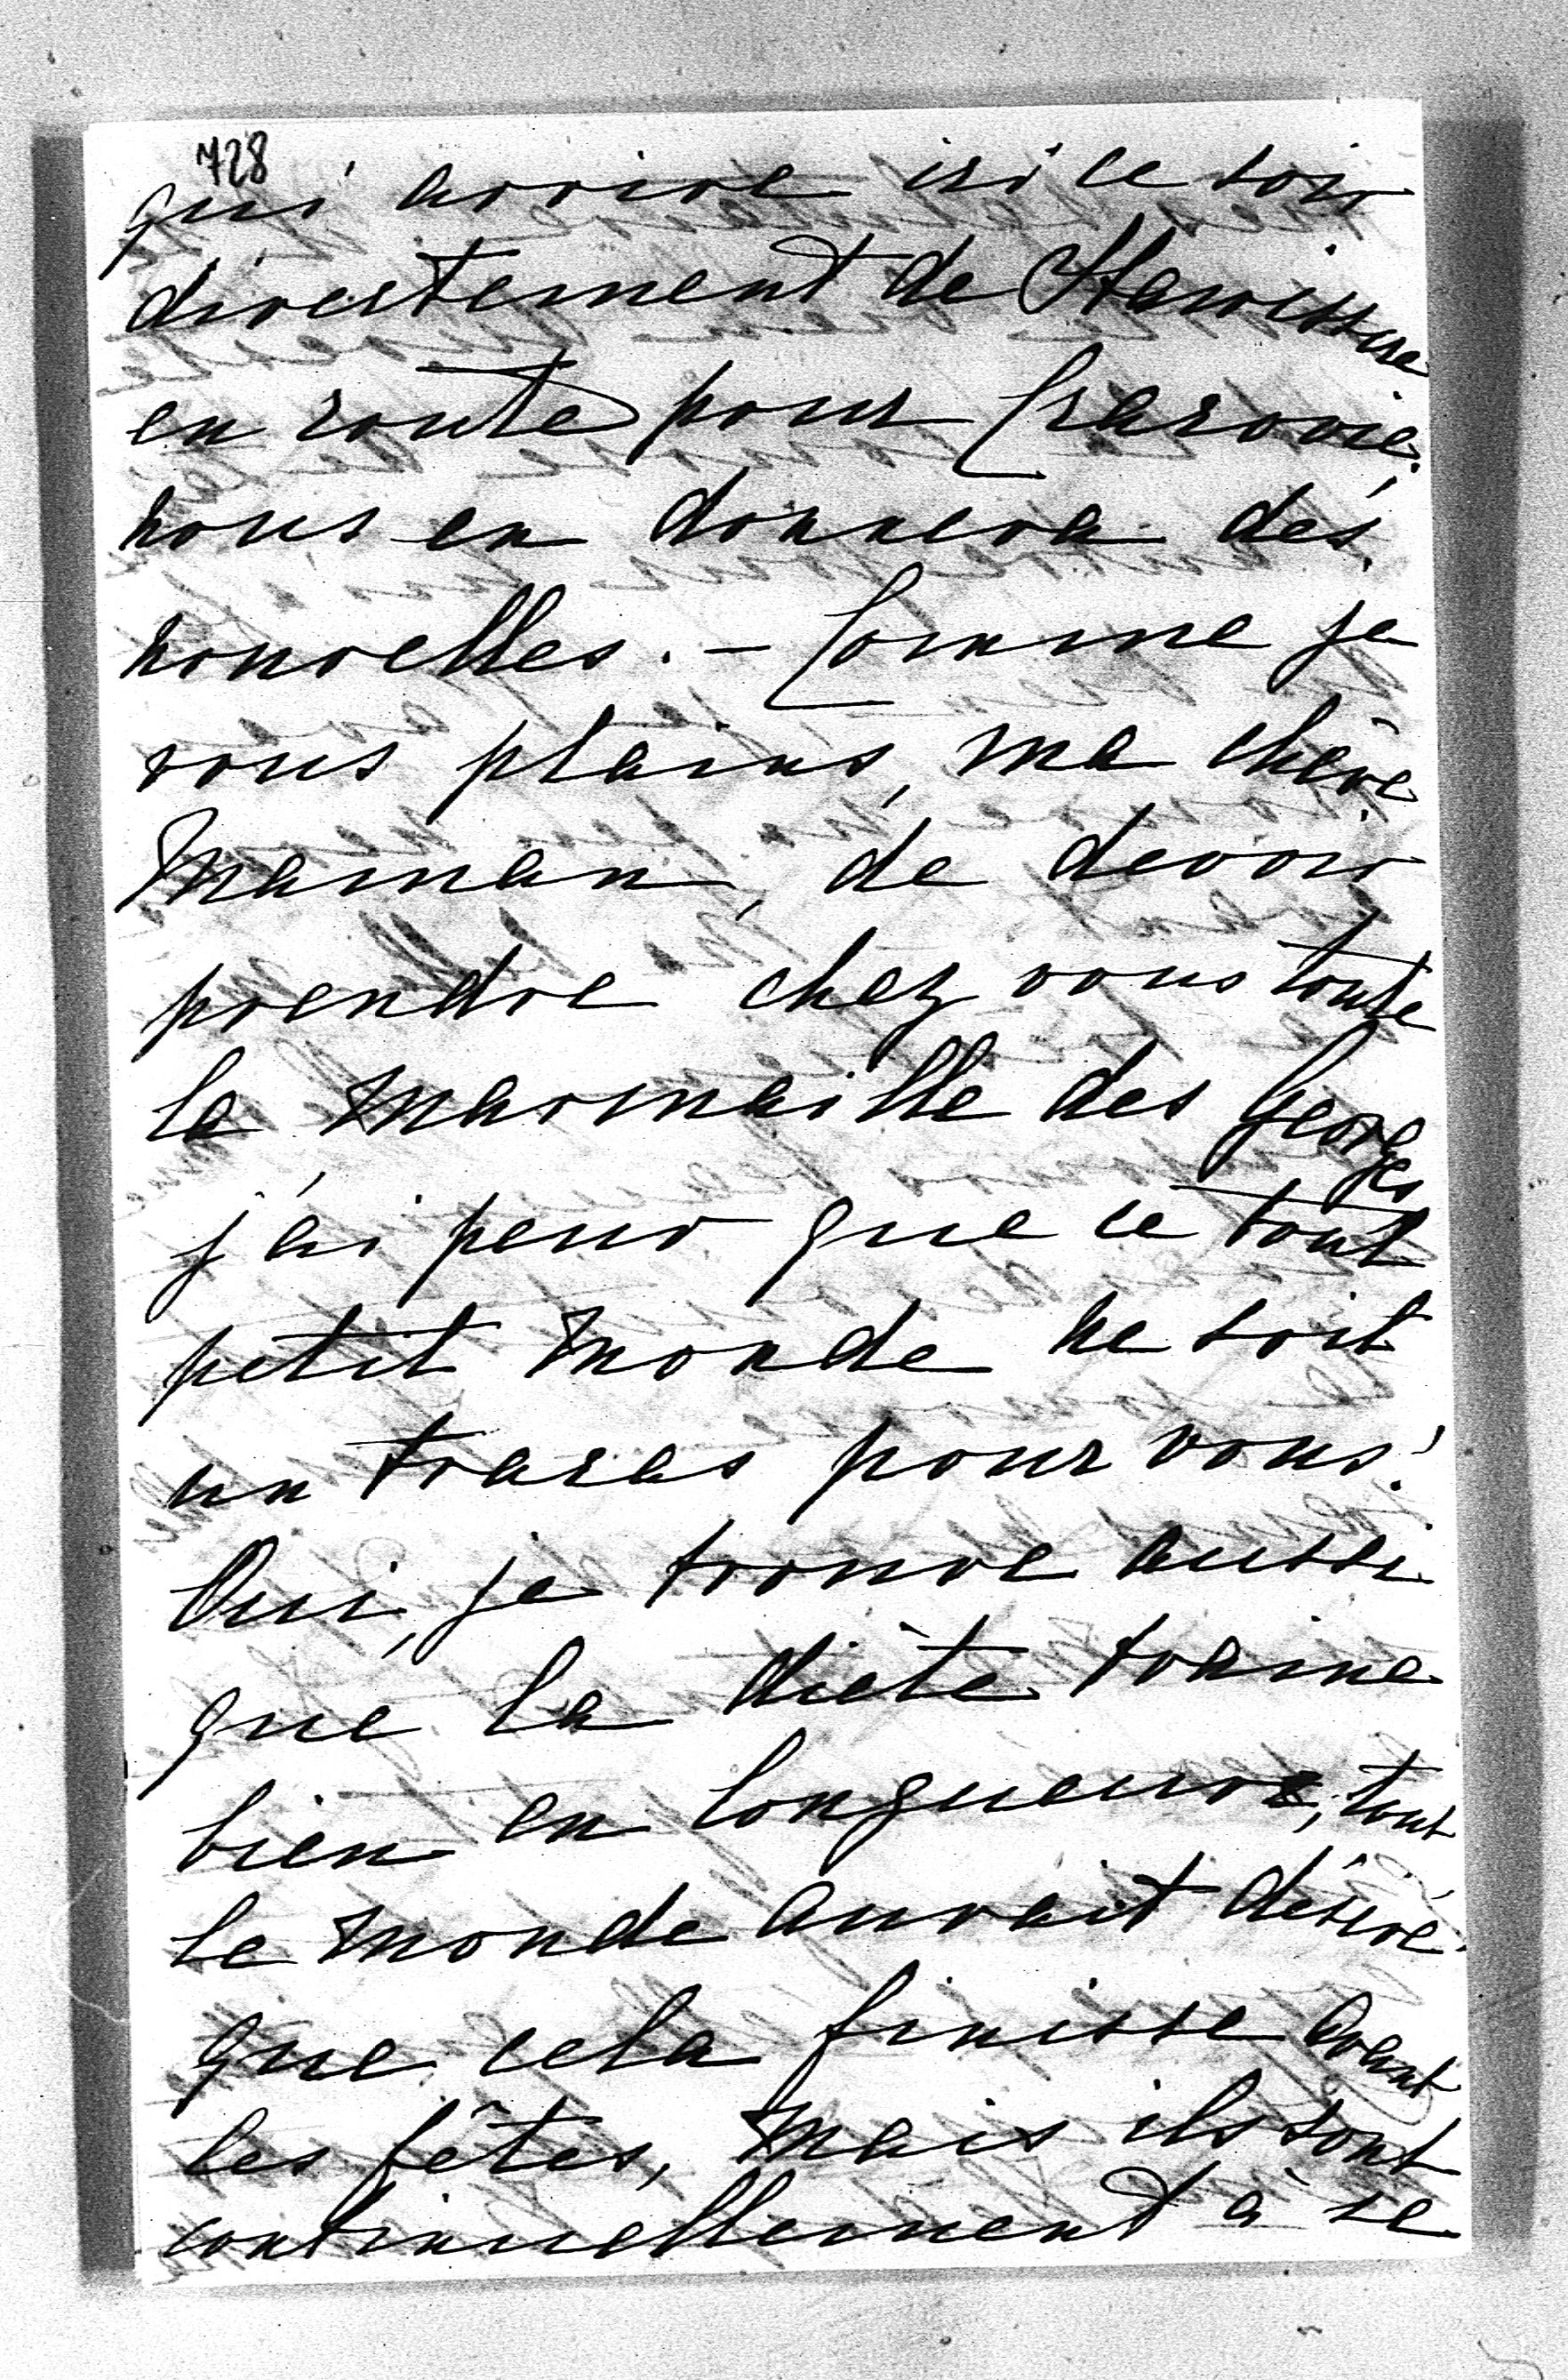 728
qui arrive ici ce soir
directement de
en route pour Cracovie,
nous en donnera des
nouvelles. – Comme je
vous plains, ma chère
Maman, de devoir
prendre chez vous toute
la marmaille des Georges
j'ai peur que ce tout
petit monde ne soit
un tracas pour vous!
Oui, je trouve aussi
que la diète traine
bien en longueur, tout
le monde aurait désiré
que cela finisse avant
les fêtes, mais ils sont
continuellement à se